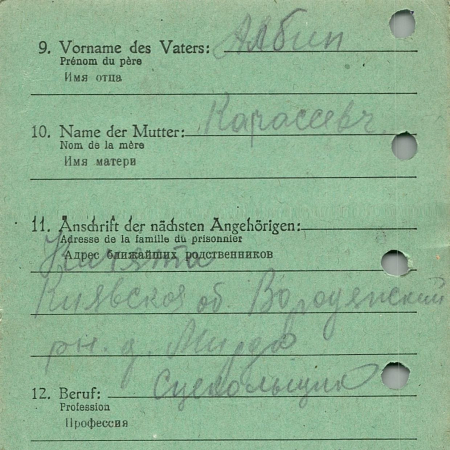 9. Vorname des Vaters: Албин
Prénom du père
Имя отца
10. Name der Mutter: Карассевч
Nom de la mère
Имя матери
11. Anschrift der nächsten Angehörigen:
Adresse de la famille du prisonnier
Адрес ближайших родственников
Киявской об. Бородянский
рн. д. Мирда
12. Beruf:
Profession
Профессия